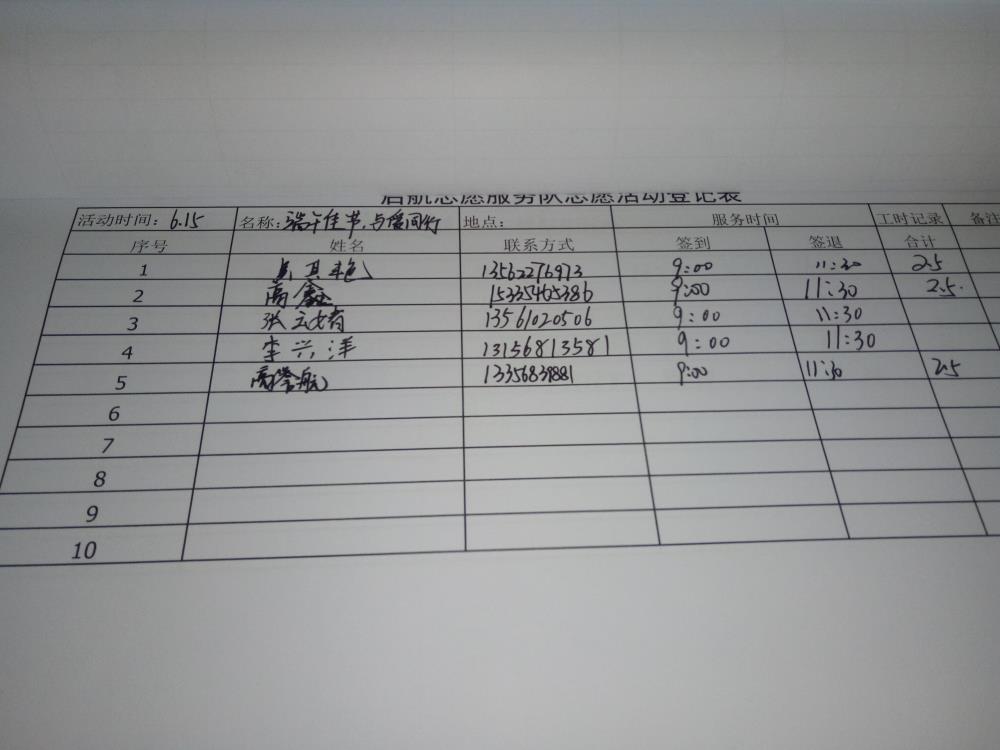 启航志愿服务队志愿活动登记表
活动时间: 6.15 名称: 端午佳节,与爱同行 地点: 服务时间 工时记录 备注
序号 姓名 联系方式 签到 签退 合计
1 13562276973 9:00 11:30 2.5
2 高鑫 15335465386 9:00 11:30 2.5
3 张 13561020506 9:00 11:30
4 李兴洋 13156813581 9:00 11:30
5 高誉航 9:00 11:30 2.5
6
7
8
9
10